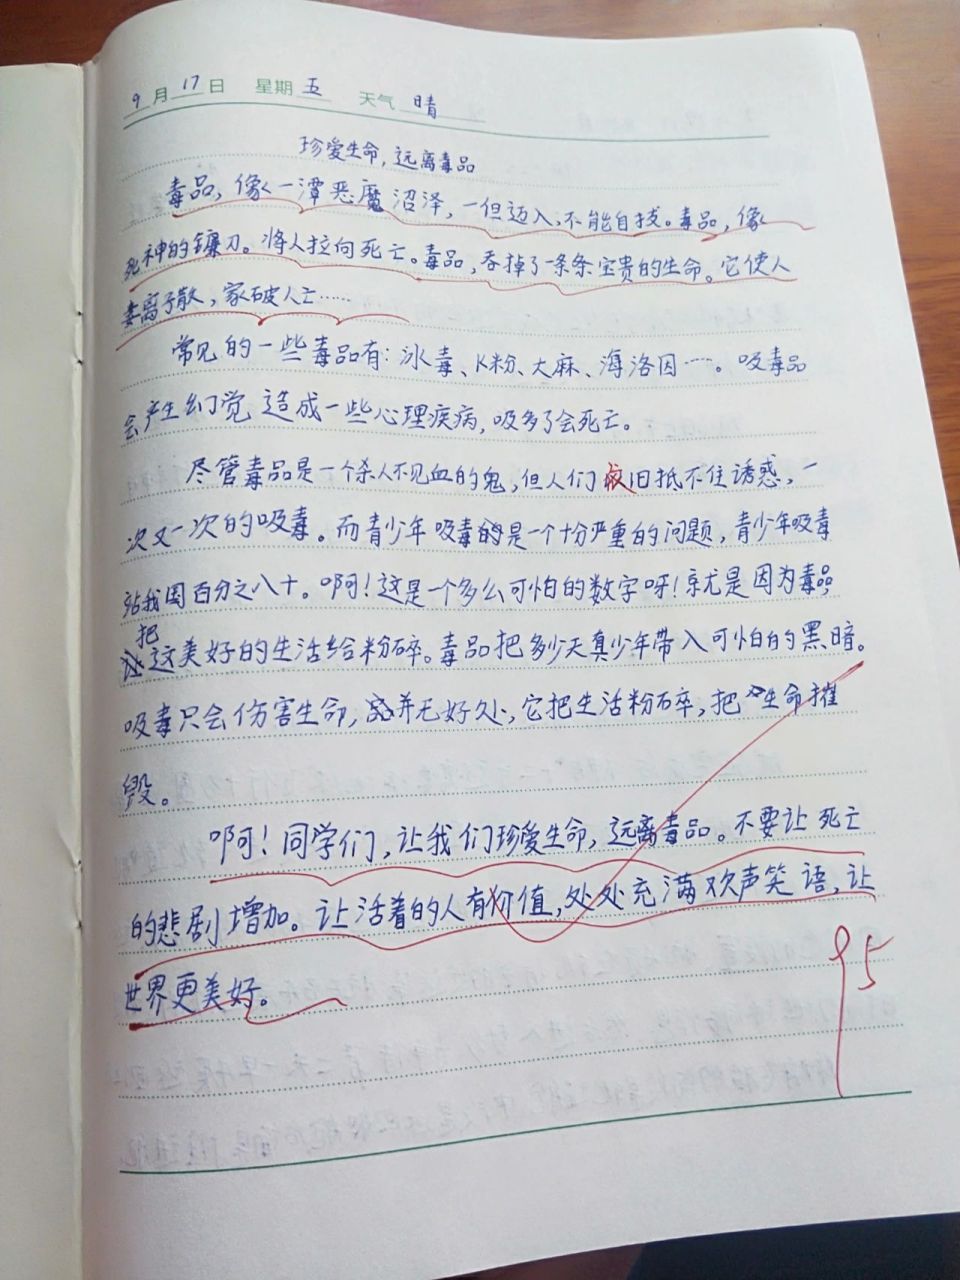 9月17日 星期五 天气 晴
珍爱生命,远离毒品
毒品,像一潭恶魔沼泽,一但迈入,不能自拔。毒品,像
死神的镰刀。将人拉向死亡。毒品,吞掉了一条条宝贵的生命。它使人
妻离子散,家破人亡……
常见的一些毒品有:冰毒、K粉、大麻、海洛因……。吸毒品
会产生幻觉,造成一些心理疾病,吸多了会死亡。
尽管毒品是一个杀人不见血的鬼,但人们旧抵不住诱惑,一
次又一次的吸毒。而青少年吸毒是一个十分严重的问题,青少年吸毒
占我国百分之八十。啊!这是一个多么可怕的数字呀!就是因为毒品,
把这美好的生活给粉碎。毒品把多少天真少年带入可怕的黑暗。
吸毒只会伤害生命,并无好处,它把生活粉碎,把生命摧
毁。
啊!同学们,让我们珍爱生命,远离毒品。不要让死亡
的悲剧增加。让活着的人有价值,处处充满欢声笑语,让
世界更美好。
95